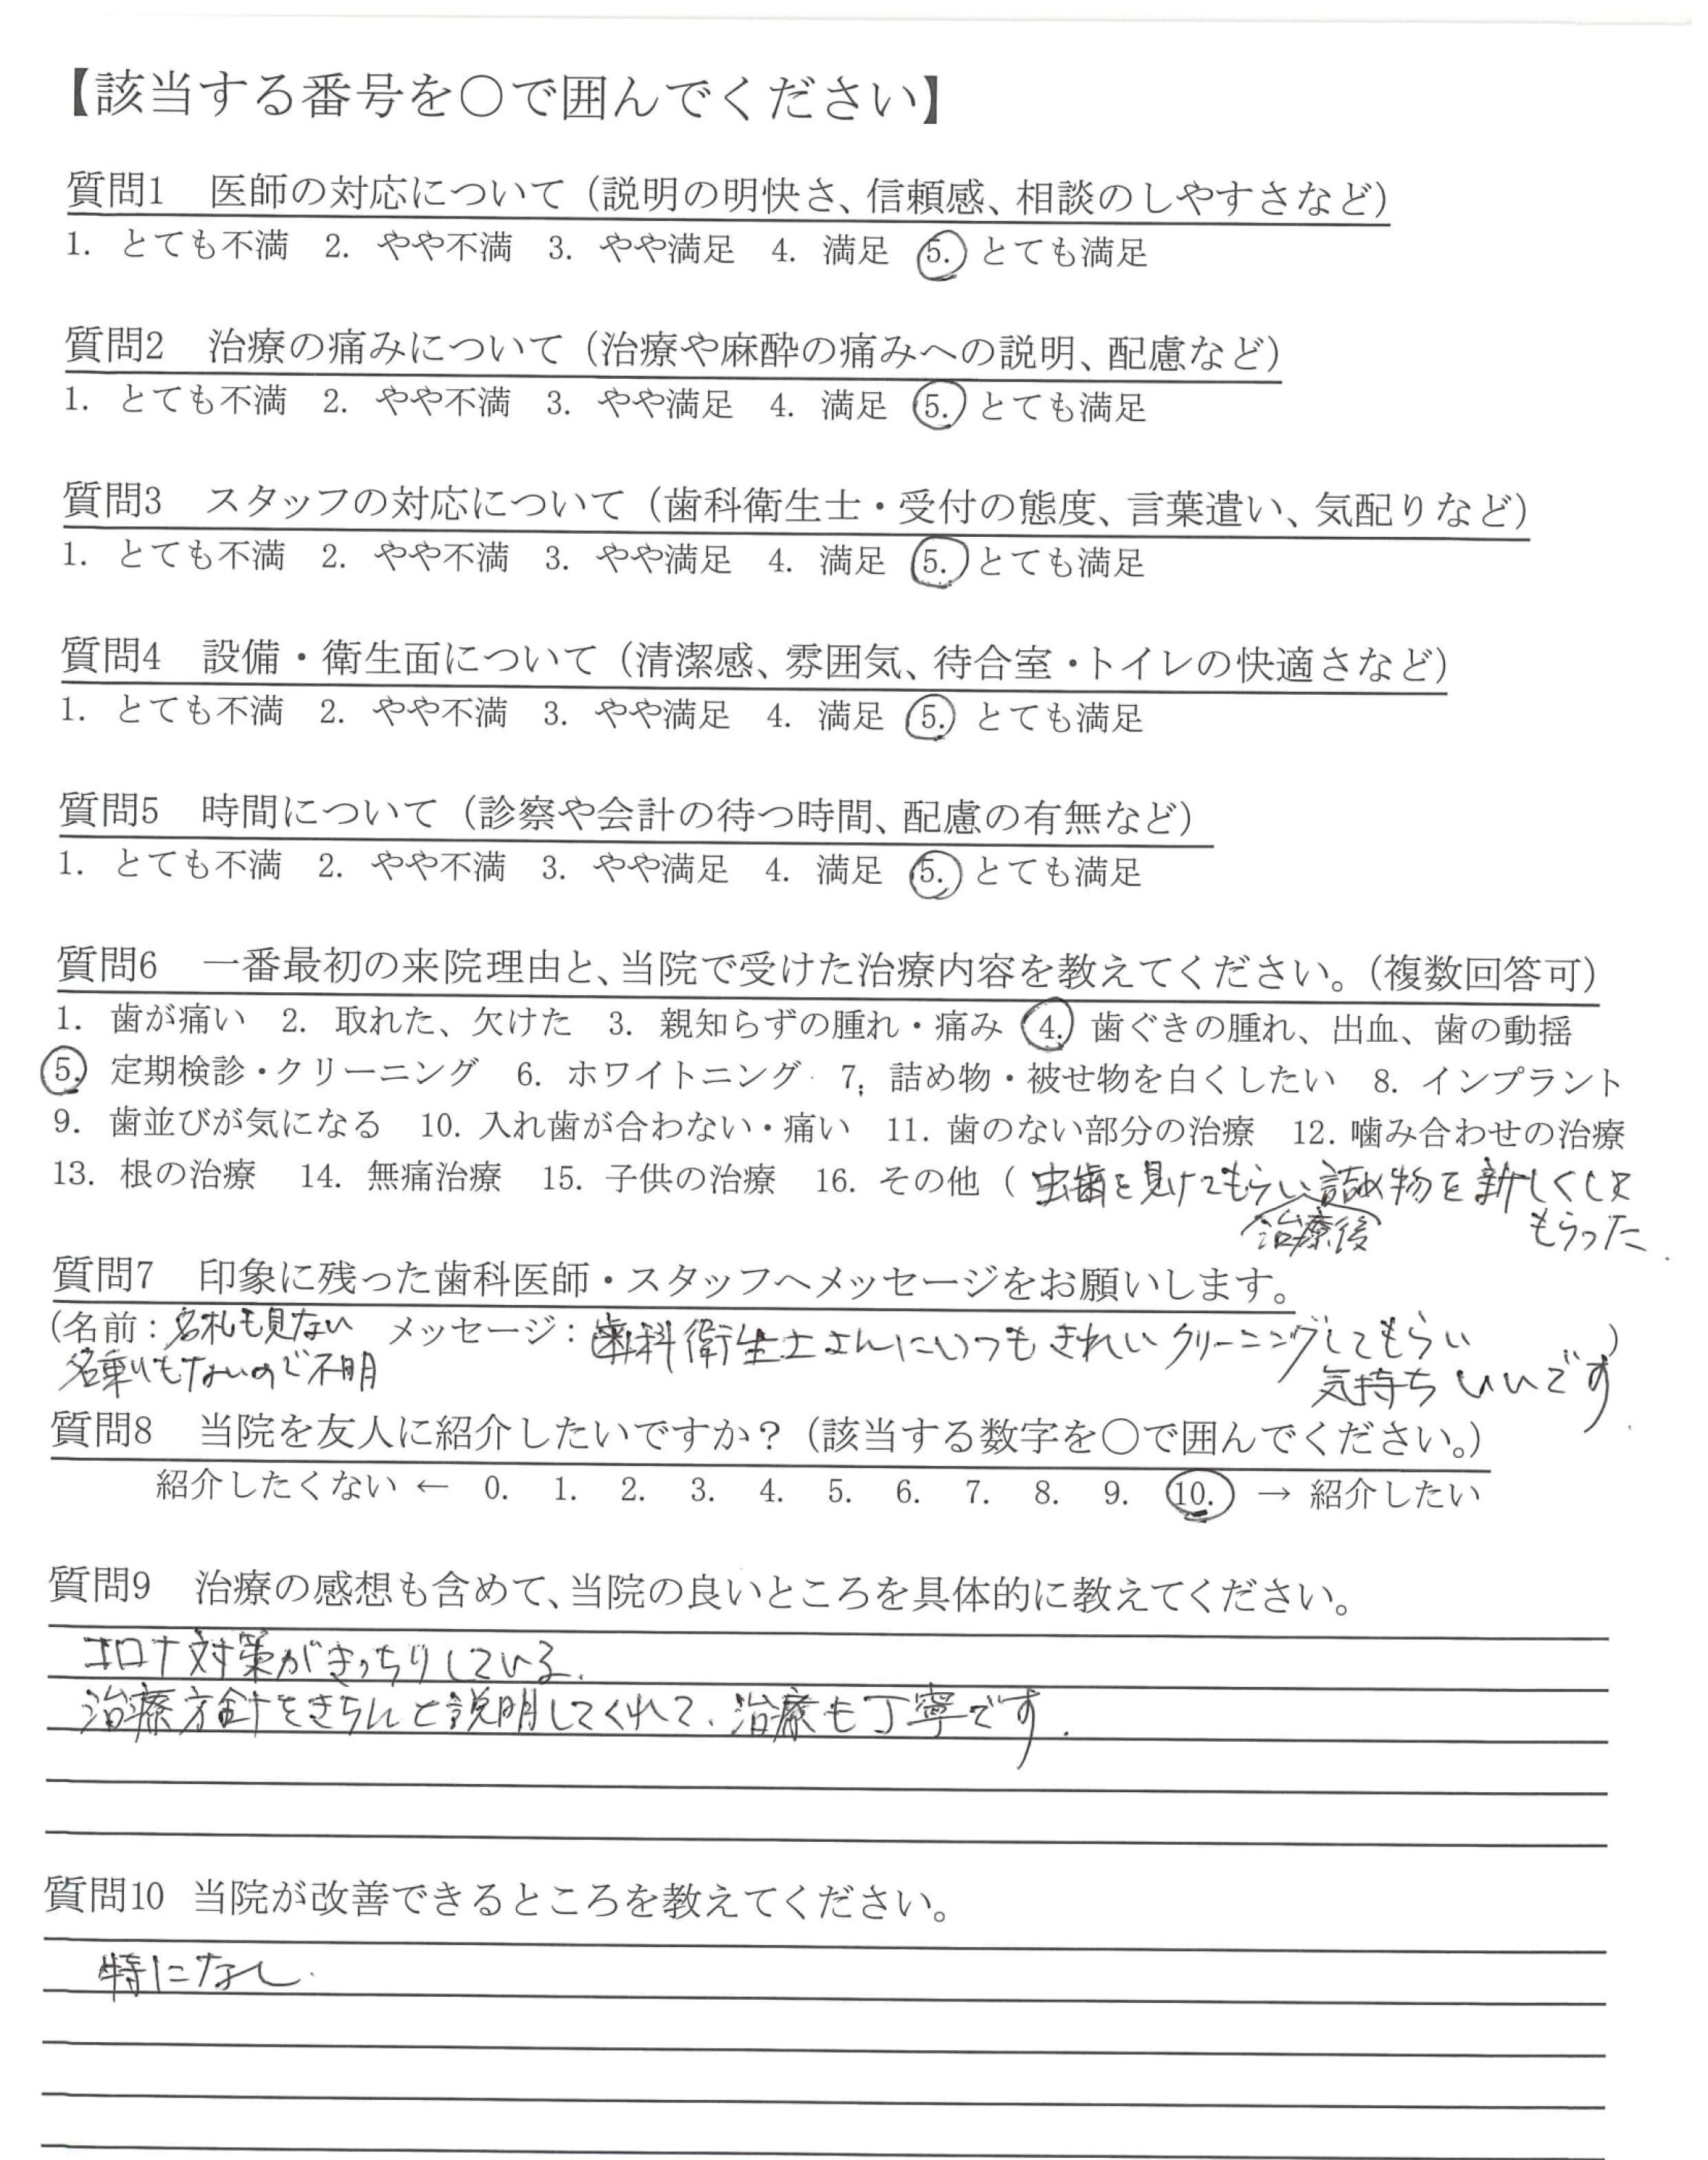 【該当する番号を○で囲んでください】
質問1　医師の対応について（説明の明快さ、信頼感、相談のしやすさなど）
1. とても不満　2. やや不満　3. やや満足　4. 満足　5. とても満足
質問2　治療の痛みについて（治療や麻酔の痛みへの説明、配慮など）
1. とても不満　2. やや不満　3. やや満足　4. 満足　5. とても満足
質問3　スタッフの対応について（歯科衛生士・受付の態度、言葉遣い、気配りなど）
1. とても不満　2. やや不満　3. やや満足　4. 満足　5. とても満足
質問4　設備・衛生面について（清潔感、雰囲気、待合室・トイレの快適さなど）
1. とても不満　2. やや不満　3. やや満足　4. 満足　5. とても満足
質問5　時間について（診察や会計の待つ時間、配慮の有無など）
1. とても不満　2. やや不満　3. やや満足　4. 満足　5. とても満足
質問6　一番最初の来院理由と、当院で受けた治療内容を教えてください。（複数回答可）
1. 歯が痛い　2. 取れた、欠けた　3. 親知らずの腫れ・痛み　4. 歯ぐきの腫れ、出血、歯の動揺
5. 定期検診・クリーニング　6. ホワイトニング　7; 詰め物・被せ物を白くしたい　8. インプラント
9. 歯並びが気になる　10. 入れ歯が合わない・痛い　11. 歯のない部分の治療　12. 噛み合わせの治療
13. 根の治療　14. 無痛治療　15. 子供の治療　16. その他（虫歯を見けてもらい詰め物を新しくして
治療後　もらった.
質問7　印象に残った歯科医師・スタッフへメッセージをお願いします。
（名前：名札も見ない　メッセージ：歯科衛生士さんにいつもきれいクリーニングしてもらい）
名乗りもないので不明　気持ちいいです.
質問8　当院を友人に紹介したいですか？（該当する数字を○で囲んでください。）
紹介したくない ← 0. 1. 2. 3. 4. 5. 6. 7. 8. 9. 10. → 紹介したい
質問9　治療の感想も含めて、当院の良いところを具体的に教えてください。
コロナ対策がきっちりしている.
治療方針をきちんと説明してくれて、治療も丁寧です.
質問10　当院が改善できるところを教えてください。
特になし.